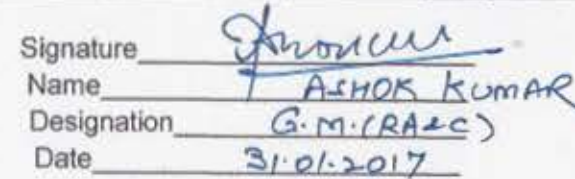 Signature
Name ASHOK KUMAR
Designation G.M.(RA&C)
Date 31.01.2017